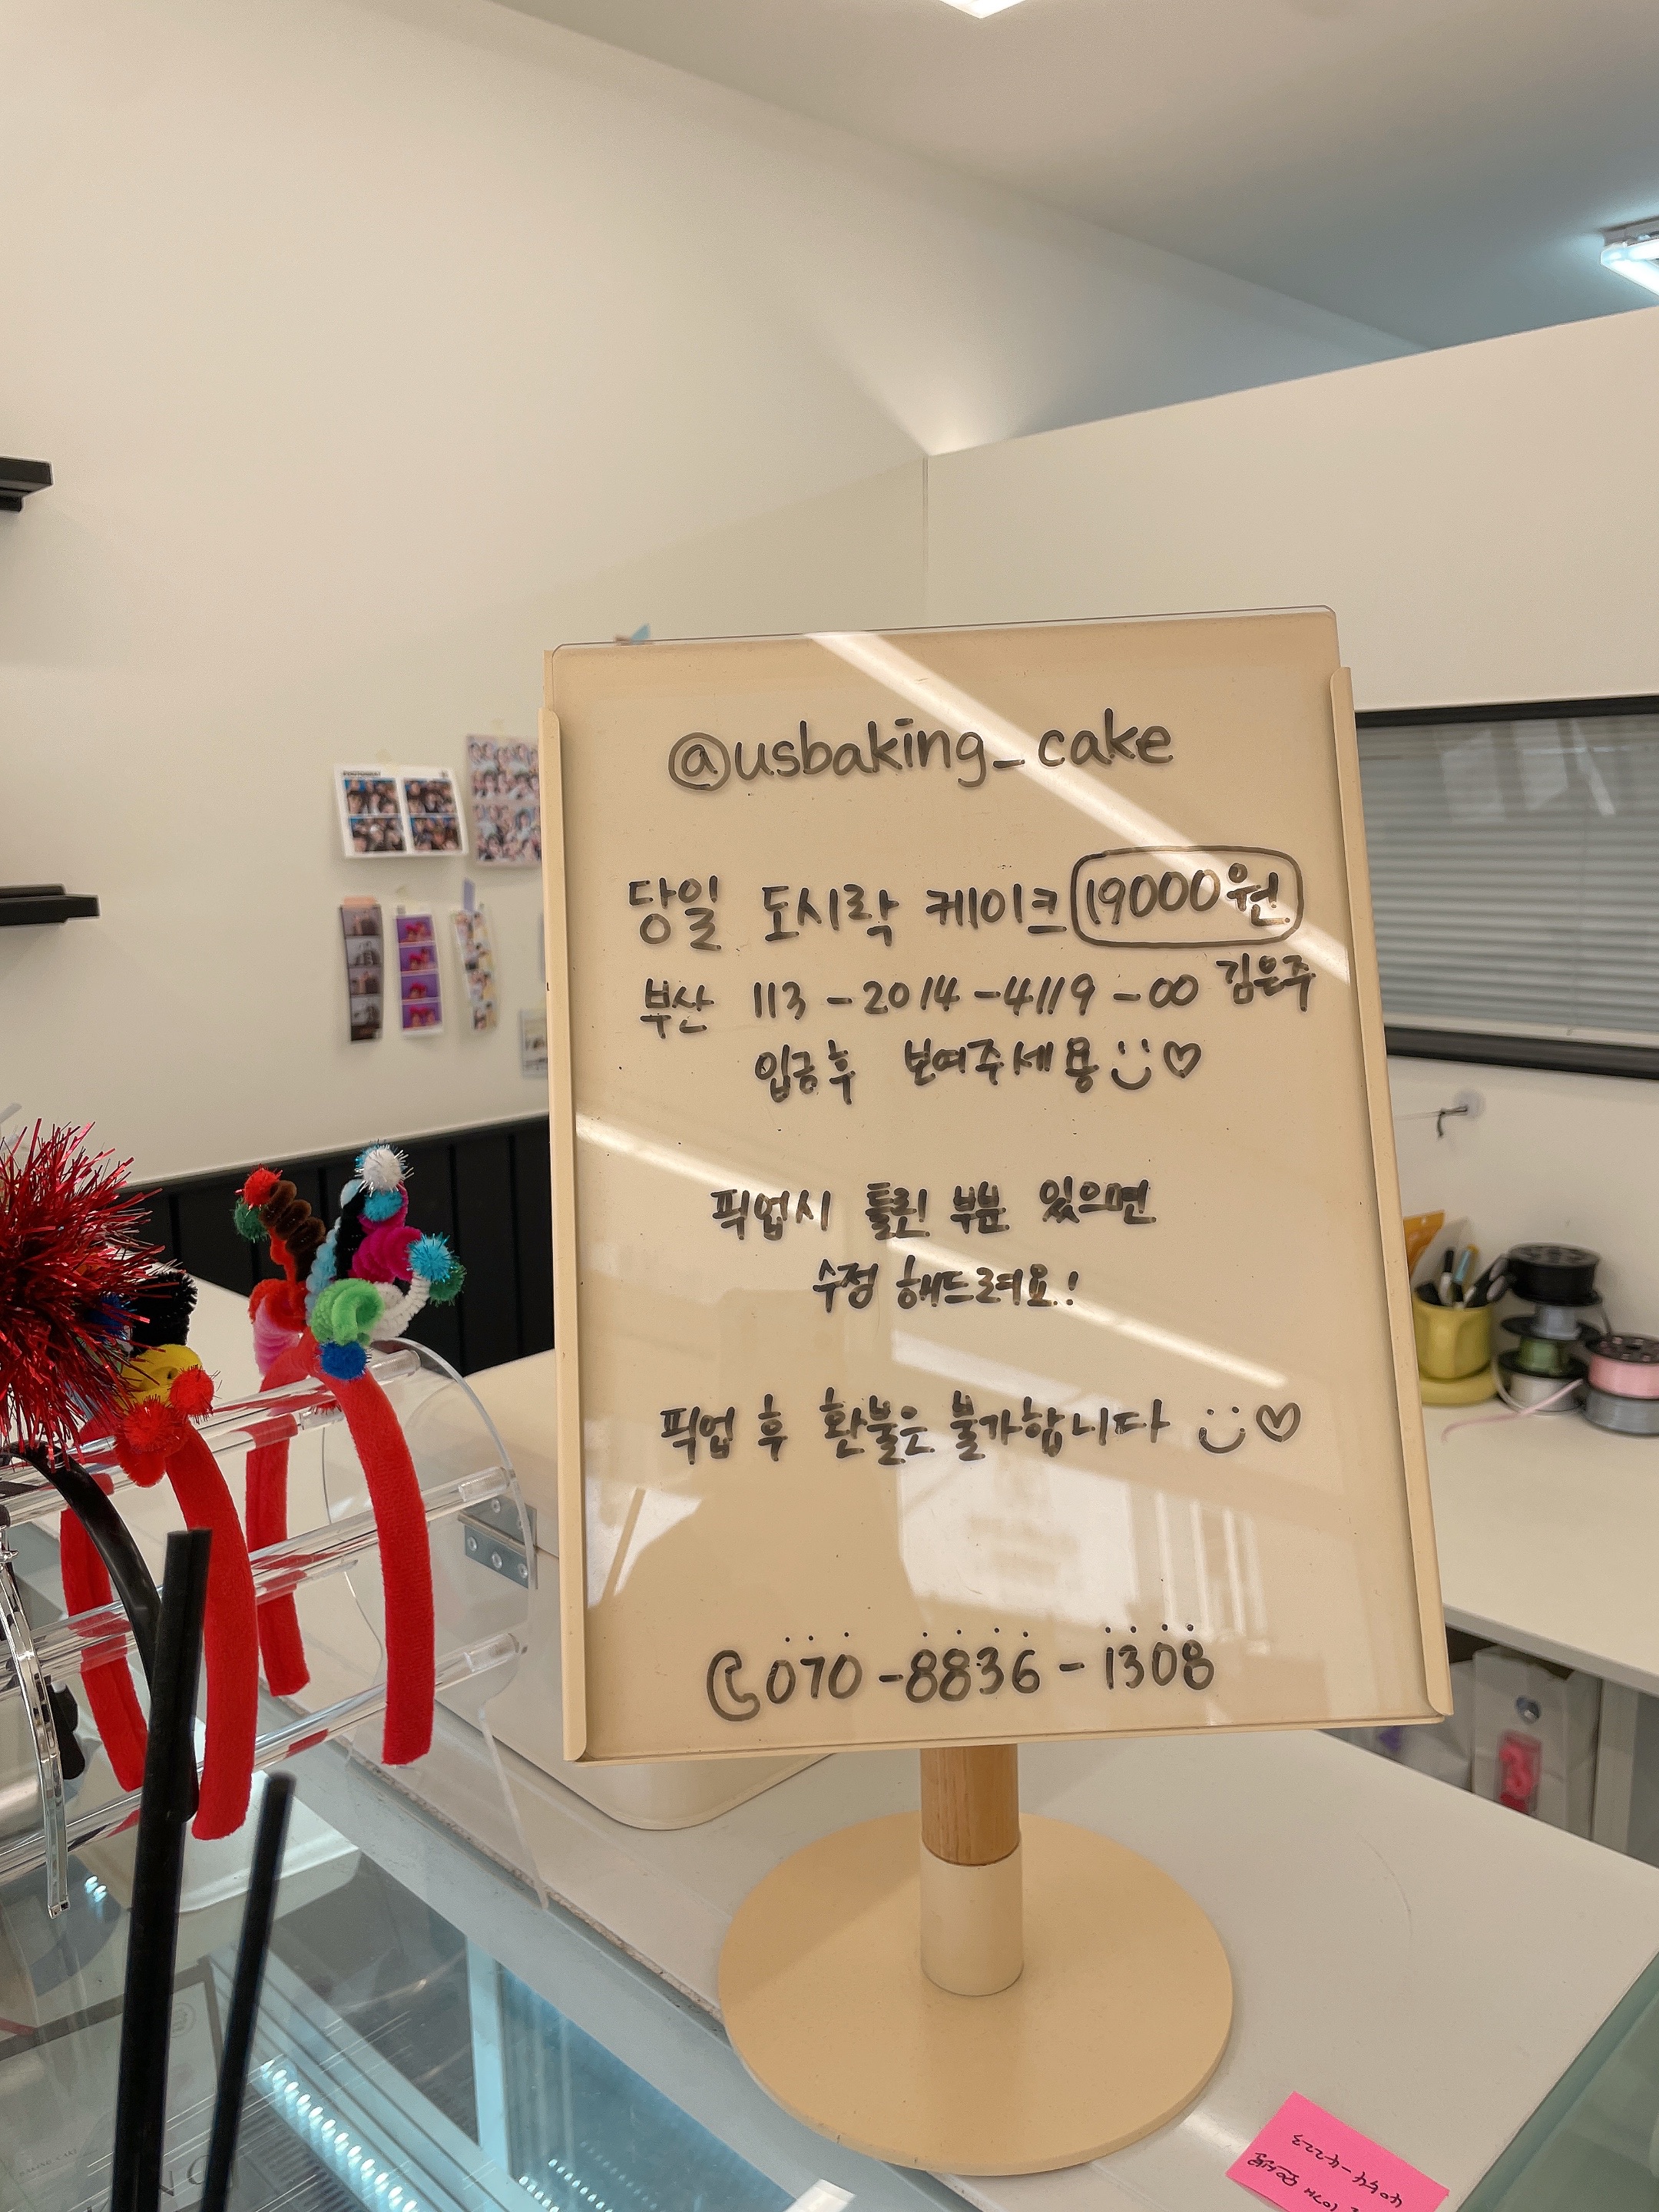 @usbaking_cake
당일 도시락 케이크 19000원
부산 113-2014-4119-00 김은주
입금후 보여주세용
픽업시 틀린 부분 있으면
수정 해드려요!
픽업 후 환불은 불가합니다
070-8836-1308